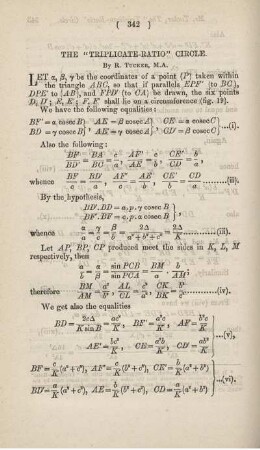 ( 342 )
THE "TRIPLICATE-RATIO" CIRCLE.
By R. TUCKER, M.A.
LET α, β, γ be the coordinates of a point (P) taken within
the triangle ABC, so that if parallels EPF' (to BC),
DPE' to (AB), and FPD' (to CA) be drawn, the six points
D, D'; E, E'; F, F' shall lie on a circumference (fig. 19).
We have the following equalities:
BF' = α cosec B }, AE = β cosec A }, CE = α cosec C }
BD = γ cosec B }, AE = γ cosec A }, CD' = β cosec C } ...(i).
Also the following:
BF'/BD' = BA/BC = c/a, AF'/AE = c/b, CE'/CD = b/a,
whence BF'/BD' · CD/CE' · AE/AF' = 1 .....(ii).
By the hypothesis,
BD'.BD = α.p.γ cosec B }
BF'.BF = c.p.α cosec B },
whence α/a = γ/c = 2Δ/(a²+b²+c²) = 2Δ/K .....(iii).
Let AP, BP, CP produced meet the sides in K, L, M
respectively, then
a/b = α/β = sin PCB/sin PCA = BM/a · b/AM;
therefore BM/AM = a²/b², AL/CL = c²/a², CK/BK = b²/c² .....(iv).
We get also the equalities
BD = 2cΔ/K sin B = ac²/K, BF' = a²c/K, AF = b²c/K }
AE' = bc²/K, CE = a²b/K, CD' = ab²/K } ...(v),
BF = c/K (a²+c²), AF' = c/K (b²+c²), CE' = b/K (a²+b²) }
BD' = a/K (a²+c²), AE = b/K (b²+c²), CD = a/K (a²+b²) } ...(vi).